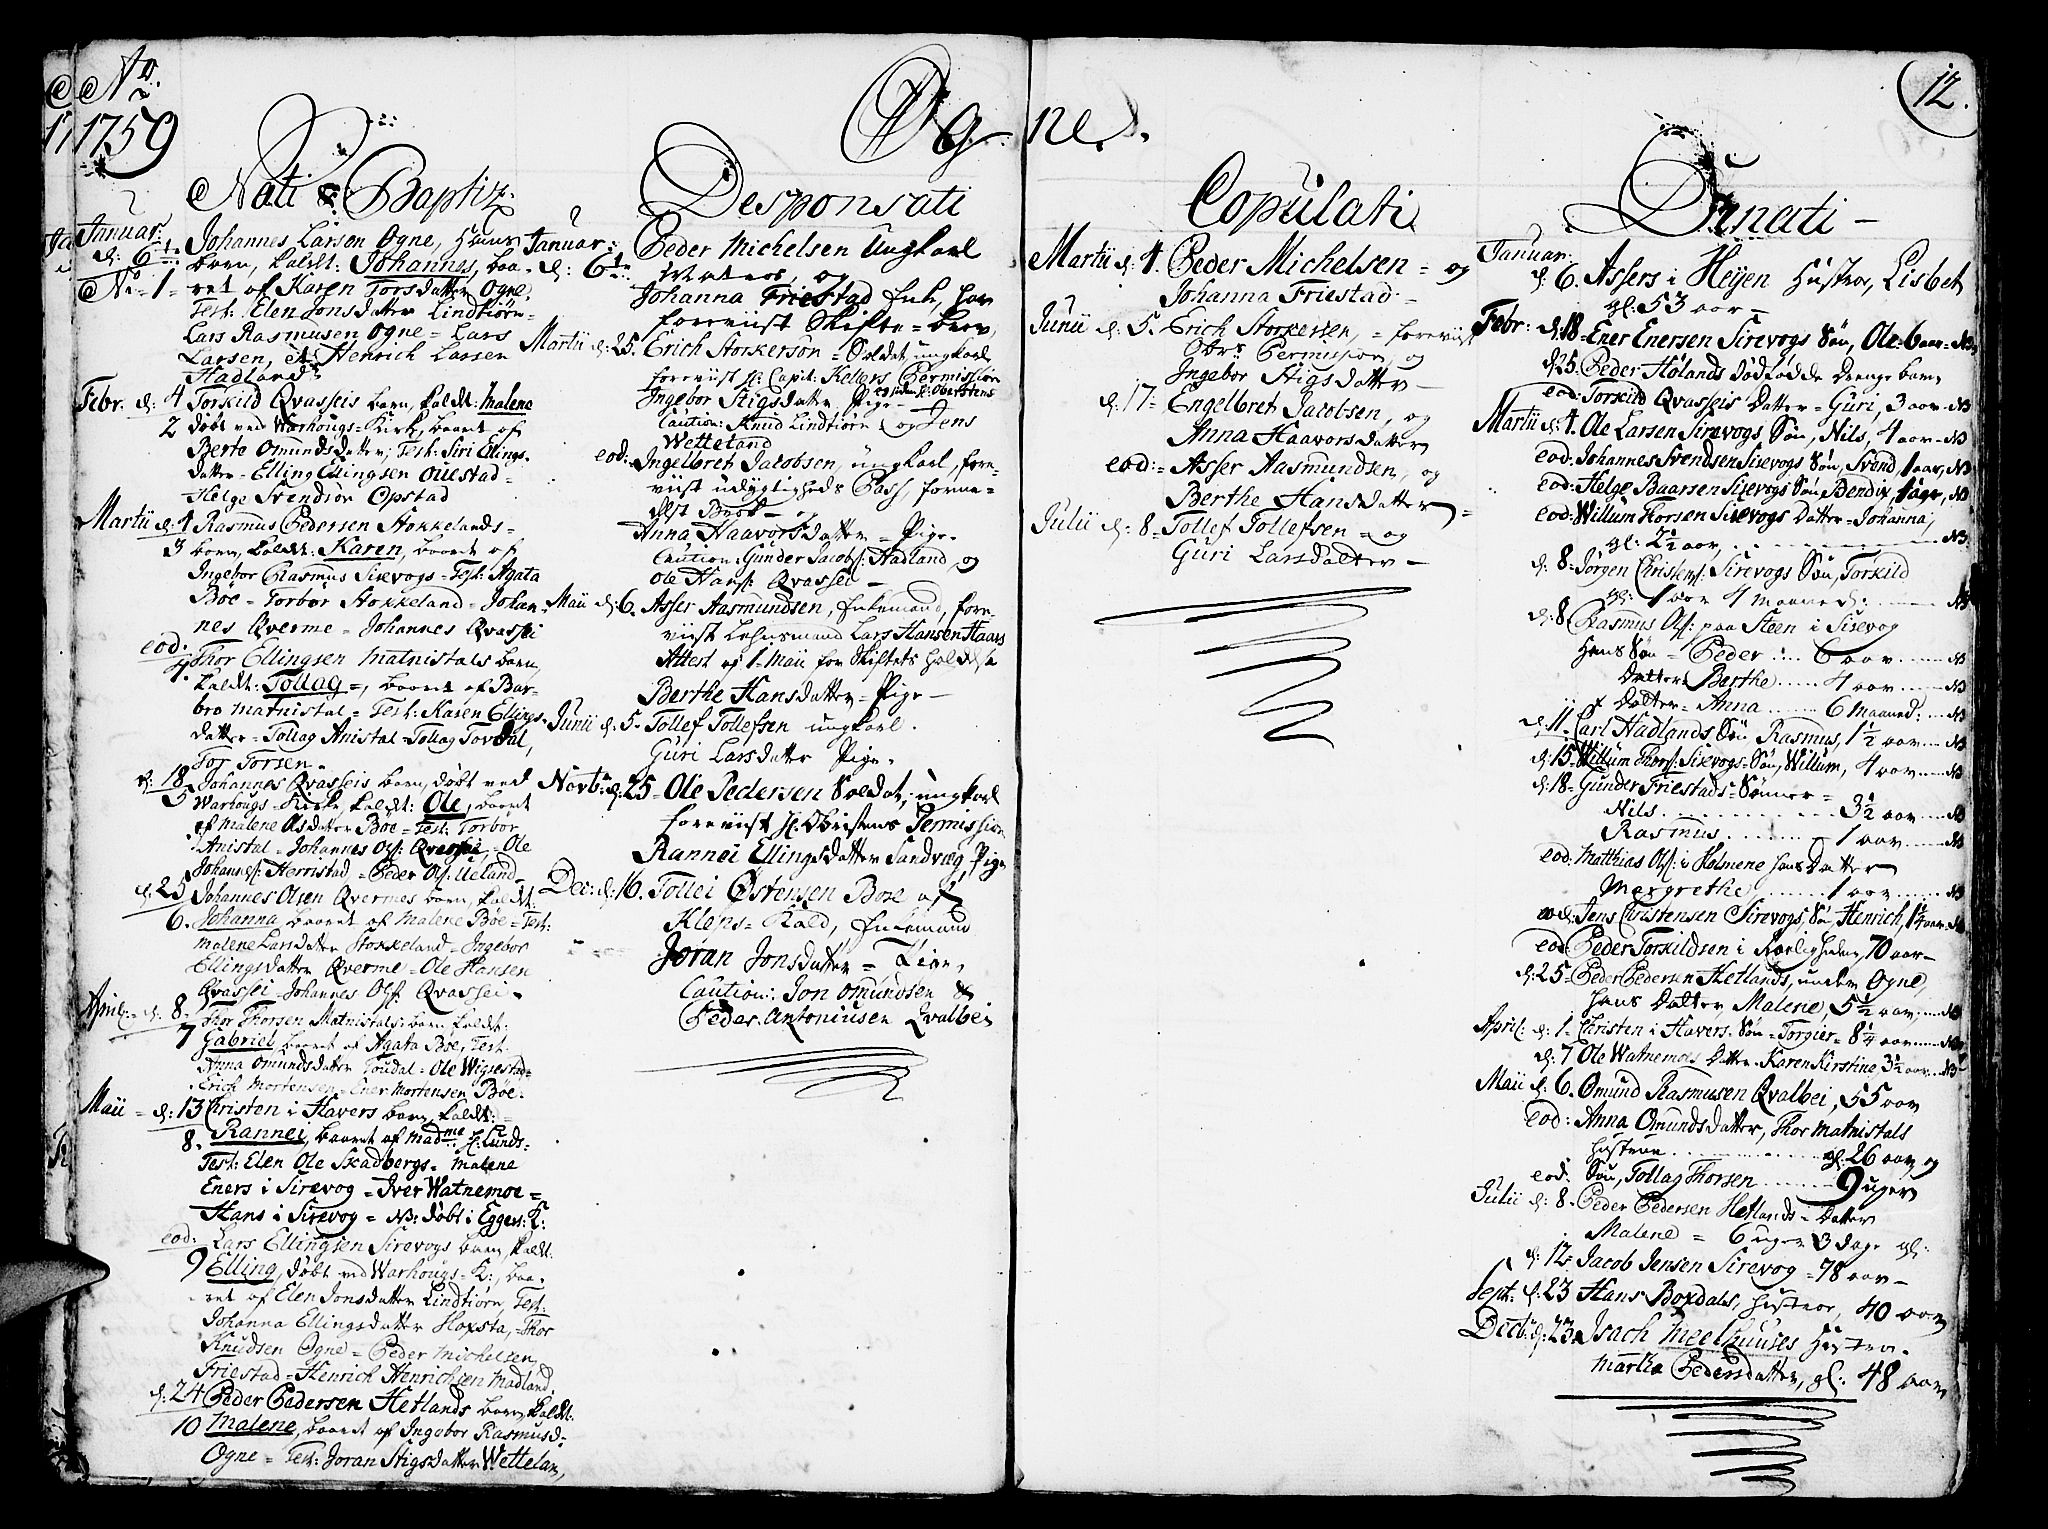 Ao
1759
Ogne.
12.
Nati & Baptiz:
Januar:
d: 6te Johannes Larsen Ogne, hans
barn, kaldt: Johannes, baa-
No 1 ret af Karen Torsdatter Ogne.
Test: Elen Jonsdatter Lindtiørn-
Lars Rasmusen Ogne = Lars
Larsen, et Henrich Larsen
Hadland
Febr. d: 4 Torkild Qvasseis barn, kaldt: Malene
2 døbt ved Warhougs-Kirke, baaret af
Berte Omundsdatter, Test: Siri Ellings-
datter = Elling Ellingsen Ollestad =
Helge Svendsen Opstad
Martii d. 4 Rasmus Pedersen Stokkelands-
3 barn, kaldt: Karen, baaret af
Ingebor Rasmus Sirevogs = Test: Agata
Böe = Torbör Stokkeland = Johan-
nes Qverme = Johannes Qvassei
eod. Thor Ellingsen Matnistals barn,
4. kaldt: Tollag =, baaret af Bar-
bro Matnistal = Test: Karen Ellings-
datter = Tollag Anistal = Tollag Tordal,
Tor Torsen.
d: 18 Johannes Qvasseis barn, døbt ved
5 Warhougs-Kirke, kaldt: Ole, baaret
af Malene Olsdatter Böe = Test: Torbör
Anistal = Johannes Ols: Qvassei, = Ole
Johannes: Herristad = Peder Ols: Ueland-
d. 25 Johannes Olsen Qvermes barn, kaldt:
6. Johanna baaret af Malene Böe = Test:
Malene Larsdatter Stokkeland = Ingebor
Ellingsdatter Qverme = Ole Hansen
Qvassei = Johannes Ols: Qvassei.
April: d: 8 Thor Thorsen Matnistals barn kaldt:
7 Gabriel baaret af Agata Böe, Test:
Anna Omundsdatter = Ole Wigrestad=
Erich Mortensen = Ener Mortensen Böe.
Maii = d: 13 Christen i Havers barn, kaldt:
8. Rannei, baaret af Madme H: Lunds-
Test: Elen Ole Skadbergs = Malene
Eners i Sirevog = Iver Watnemoe =
Hans i Sirevog = NB: døbt i Eggers: K:
eod: Lars Ellingsen Sirevogs barn, kaldt:
9 Elling, døbt ved Warhougs = K:, baa-
ret af Elen Jonsdatter Lindtiørn, Test:
Johanna Ellingsdatter = Thor
Knudsen Ogne = Peder Michelsen
Friestad = Henrich Henrichsen Madland.
d: 24 Peder Pedersen Hetlands barn, kaldt:
10 Malene, baaret af Ingebor Rasmusd:
Ogne = Test: Joran Stigsdatter Wettelan,
Desponsati
Januar:
d: 6te Peder Michelsen Ungkarl
og
Johanna Friestad Enke, har
foreviist Skifte = brev,
Martii d: 25. Erich Storkersøn = Soldat, ungkarl,
foreviist H: Capit: Kellers Permission
og siden H: Oberstens
Ingebor Stigsdatter Pige-
Caution: Knud Lindtiørn og Jens
Wetteland
eod: Ingelbret Jacobsen, ungkarl, fore-
viist udygtigheds Pass, forme-
delst
Anna Haavorsdatter = Pige.
Caution: Gunder Jacobs: Hadland, og
Ole Hans: Qvassei -
Maii d: 6. Asser Aasmundsen, Enkemand, fore-
viist Lehnsmand Lars Hansen Haars
Attest af 1 Maii for Skiftets holdelse
Berthe Hansdatter = Pige -
Junii d: 5- Tollef Tollefsen ungkarl.
Guri Larsdatter Pige.
Novbr: d: 25 = Ole Pedersen Soldat, ungkarl
foreviist H: Christens Permission
Rannei Ellingsdatter Sandvæg, Pige
Dec: d: 16. Tollei Østensen Boe af
Kleps-Kald, Enkemand
Joran Jonsdatter = Pige,
Caution: Jon Omundsen &
Peder Antoniusen Qvalbei
Copulati
Martii d: 4. Peder Michelsen = og
Johanna Friestad -
Junii d: 5. Erich Storkersen, = foreviist
Obrs Permission, og
Ingebor Stigsdatter -
d: 17= Engelbret Jacobsen, og
Anna Haavorsdatter
eod: = Asser Aasmundsen, og
Berthe Hansdatter =
Julii d: 8- Tollef Tollefsen = og
Guri Larsdatter -
Denati -
Januar:
d: 6. Assers i Heyen Hustroe, Lisbet
gl: 53 aar -
Febr: d. 18 = Ener Enersen Sirevogs Søn, Ole 6 aar = NB
d: 25. Peder Hølands dødfødde drenge barn,
eod: Torkild Qvasseis Datter = Guri, 3 aar. NB
Martii d: 4. Ole Larsen Sirevogs Søn, Nils, 4 aar - NB
eod: Johannes Svendsen Sirevogs Søn, Svend 1 aar, NB
eod: Helge Baarsen Sirevogs Søn Bendix, 1 aar, NB
eod: Willum Thorsen Sirevogs Datter = Johanna,
gl: 2½ aar, NB
d: 8- Jörgen Christens: Sirevogs Søn, Torkild
gl: 1 aar 4 maaned: NB
d: 8 Rasmus Ols: paa Steen i Sirevog
Hans Søn = Peder 6 aar NB
Datter Berthe 4 aar NB
Datter = Anna 6 maaned: NB
d. 11. Carl Hadlands Søn Rasmus, 1½ aar NB
d. 15 Willum Thors: Sirevogs Søn, Willum, 4 aar NB
d: 18- Gunder Friestads = Sønner =
Nils 3½ aar NB
Rasmus 1 aar NB
eod: Matthias Ols: i Holmene hans Datter
Margrethe 1 aar NB
eod: Jens Christensen Sirevogs, Søn Henrich, 1¼ aar NB
eod: Peder Torkildsen i Kierligheden, 70 aar -
d: 25 = Peder Pedersen Hetlands, under Ogne,
hans Datter Malene, 5½ aar, NB
April: d: 1 = Christen i Havers Søn = Torgier = 8¼ aar NB
d: 7 Ole Watnemoes Datter Karen Kirstine 3½ aar NB
Maii d: 6. Omund Rasmusen Qvalbei, 55 aar
eod: Anna Omundsdatter, Thor Matnistals
hustrue gl: 26 aar og
eod: Søn, Tollag Thorsen 9 uger
Julii d: 8- Peder Pedersen Hetlands = Datter
Malene = 6 uger 3 dage gl:
d: 12= Jacob Jensen Sirevog = 78 aar -
Sept: d: 23 Hans Boxdals, hustroe, 40 aar
Decb: d: 23. Isach Meelhuuses Hustro.
Martha Pedersdatter, gl: 48 aar